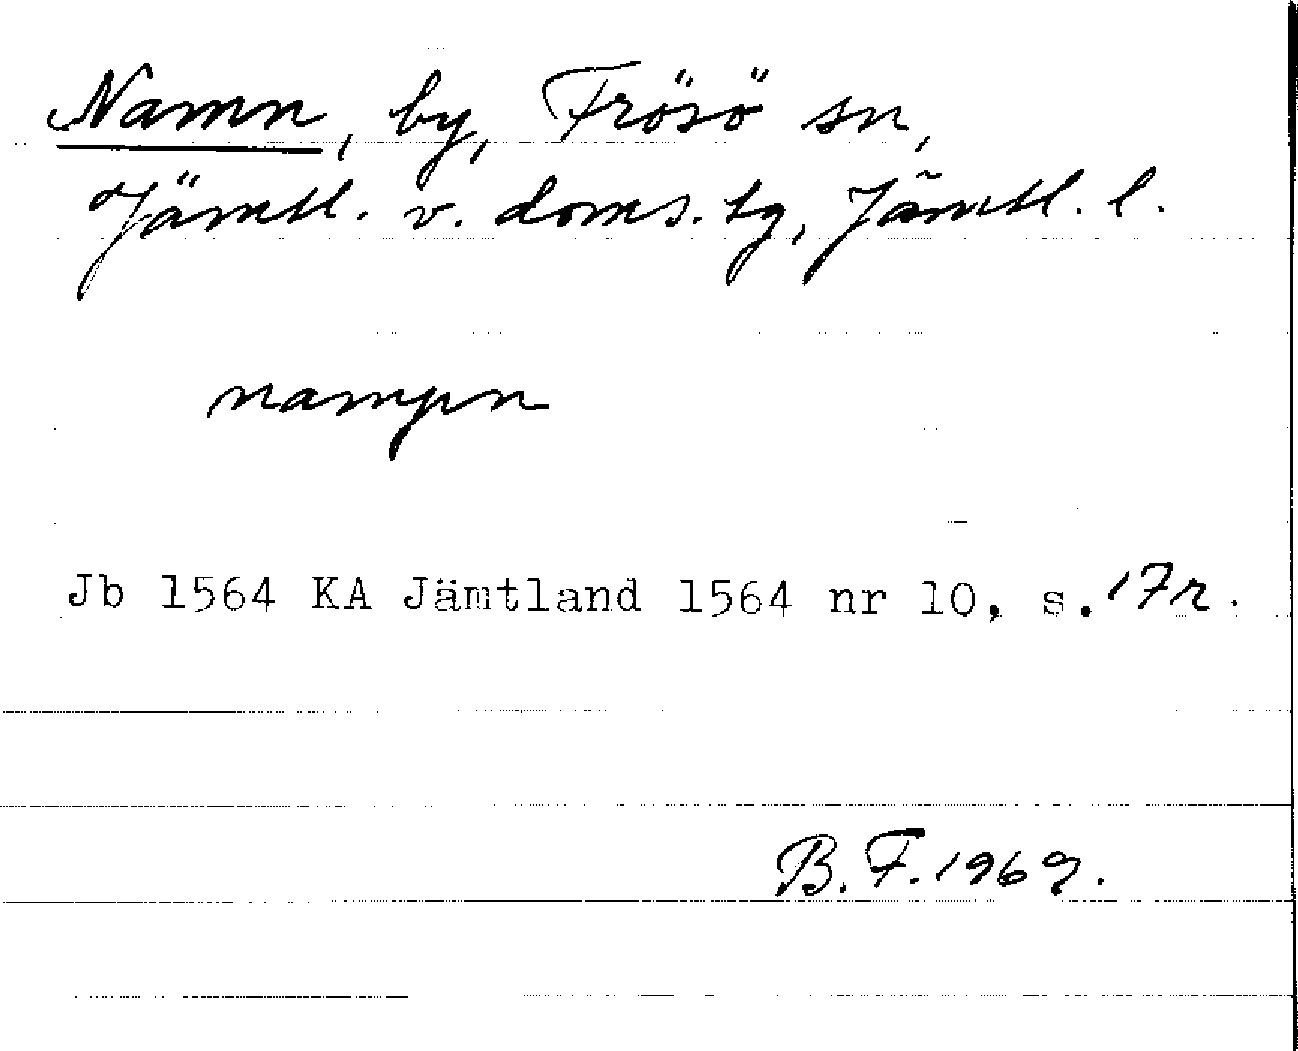 Namn, by, Frösö sn,
Jämtl. v. doms. tg, Jämtl. l.
nampn
Jb 1564 KA Jämtland 1564 nr 10, s. 17r.
B. F. 1969.